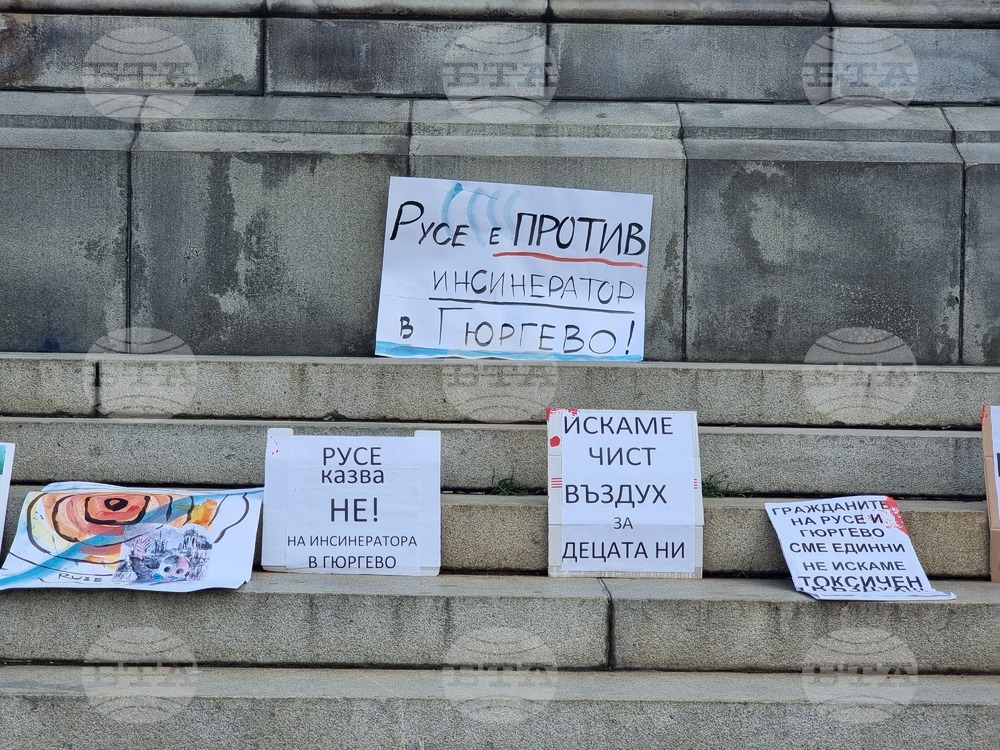 Русе е ПРОТИВ
ИНСИНЕРАТОР
в Гюргево!
РУСЕ
казва
НЕ!
НА ИНСИНЕРАТОРА
В ГЮРГЕВО
ИСКАМЕ
ЧИСТ
ВЪЗДУХ
ЗА
ДЕЦАТА НИ
ГРАЖДАНИТЕ
НА РУСЕ И
ГЮРГЕВО
СМЕ ЕДИННИ
НЕ ИСКАМЕ
ТОКСИЧЕН
ВЪЗДУХ!
RUSE
БТА
БТА
БТА
БТА
БТА
БТА
БТА
БТА
БТА